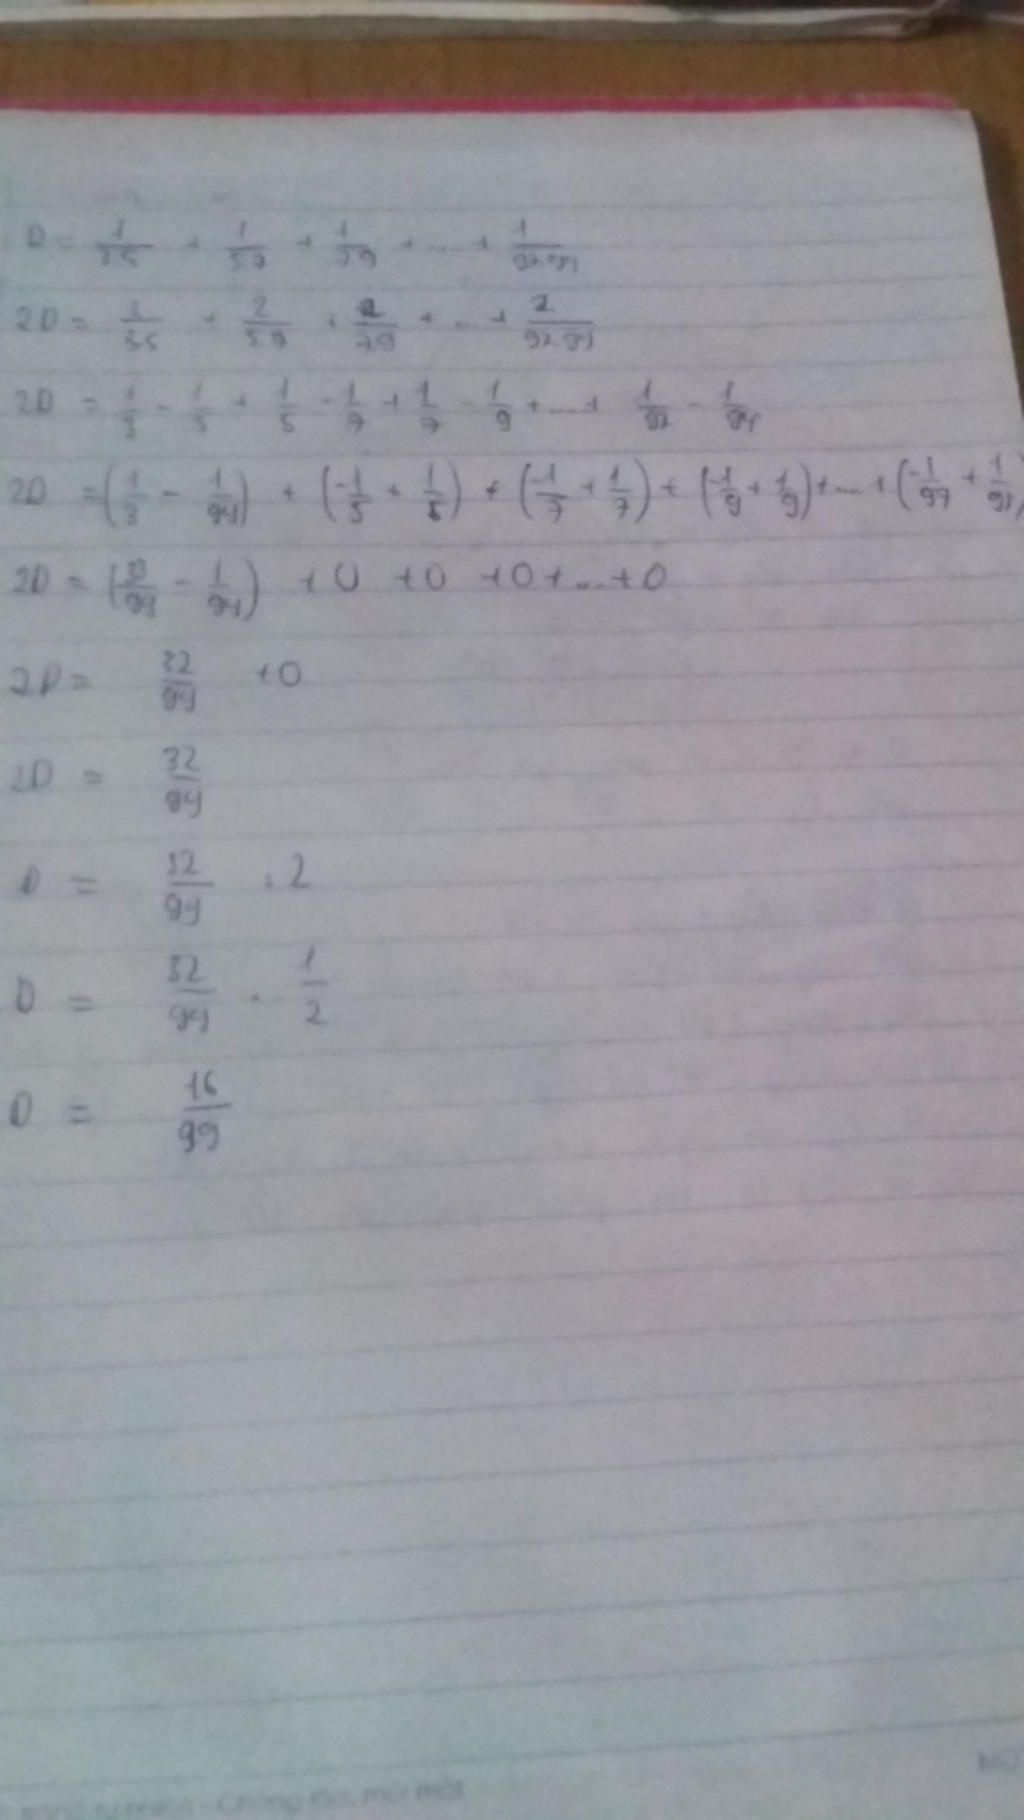 D = 1/3.5 + 1/5.7 + 1/7.9 + ... + 1/97.99
2D = 2/3.5 + 2/5.7 + 2/7.9 + ... + 2/97.99
2D = 1/3 - 1/5 + 1/5 - 1/7 + 1/7 - 1/9 + ... + 1/97 - 1/99
2D = (1/3 - 1/99) + (-1/5 + 1/5) + (-1/7 + 1/7) + (-1/9 + 1/9) + ... + (-1/97 + 1/97)
2D = (33/99 - 1/99) + 0 + 0 + 0 + ... + 0
2D = 32/99 + 0
2D = 32/99
D = 32/99 : 2
D = 32/99 . 1/2
D = 16/99